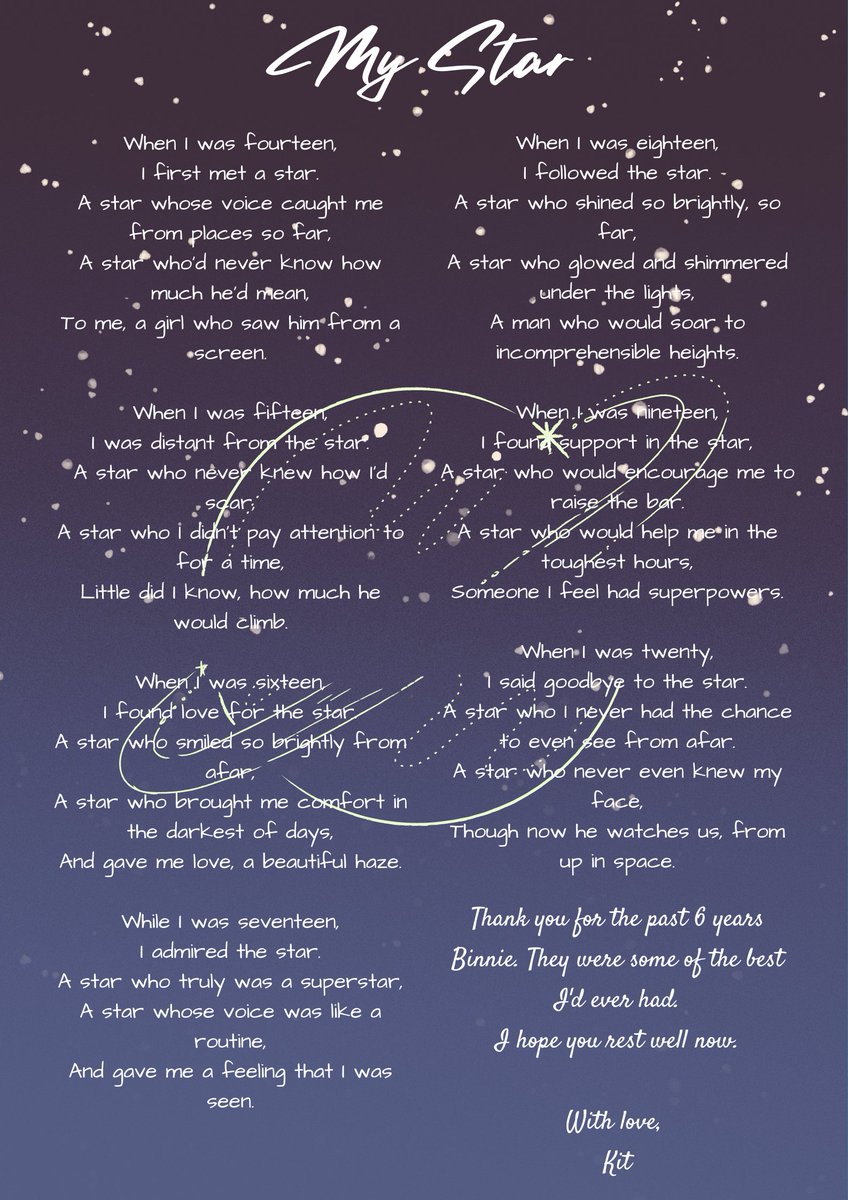 My Star
When I was fourteen,
I first met a star.
A star whose voice caught me
from places so far,
A star who'd never know how
much he'd mean,
To me, a girl who saw him from a
screen.
When I was fifteen,
I was distant from the star.
A star who never knew how I'd
scar,
A star who i didn't pay attention to
for a time,
Little did I know, how much he
would climb.
When I was sixteen,
I found love for the star.
A star who smiled so brightly from
afar,
A star who brought me comfort in
the darkest of days,
And gave me love, a beautiful haze.
While I was seventeen,
I admired the star.
A star who truly was a superstar,
A star whose voice was like a
routine,
And gave me a feeling that I was
seen.
When I was eighteen,
I followed the star.
A star who shined so brightly, so
far,
A star who glowed and shimmered
under the lights,
A man who would soar to
incomprehensible heights.
When I was nineteen,
I found support in the star,
A star who would encourage me to
raise the bar.
A star who would help me in the
toughest hours,
Someone I feel had superpowers.
When I was twenty,
I said goodbye to the star.
A star who I never had the chance
to even see from afar.
A star who never even knew my
face,
Though now he watches us, from
up in space.
Thank you for the past 6 years
Binnie. They were some of the best
I'd ever had.
I hope you rest well now.
With love,
Kit